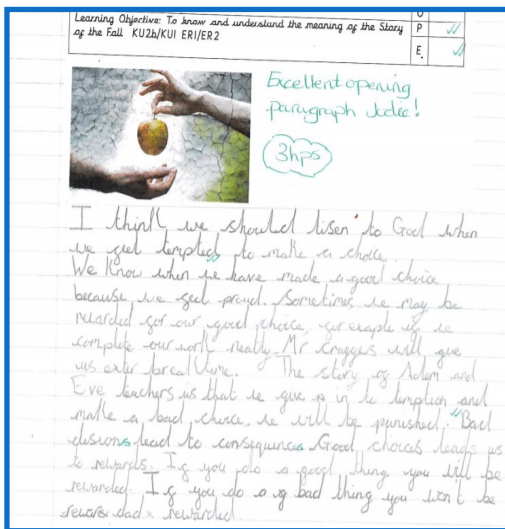 U
Learning Objective: To know and understand the meaning of the Story
of the Fall KU2b/KU1 ER1/ER2
P
E.
Excellent opening
paragraph Jodie!
3hps
I think we should lisen to God when
we feel tempted to make a choice.
We Know when we have made a good choice
because we feel proud. Sometimes we may be
rewarded for our good choice, for exaple if we
complete our work neatly. Mr Craggers will give
us exter break time. The story of Adam and
Eve teachers us that if we give in to temption and
make a bad choice, we will be punished. Bad
disions lead to consequences Good choices leads us
to rewards. If you do a good thing you will be
rewarded. If you do a bad thing you won't be
rewarded.